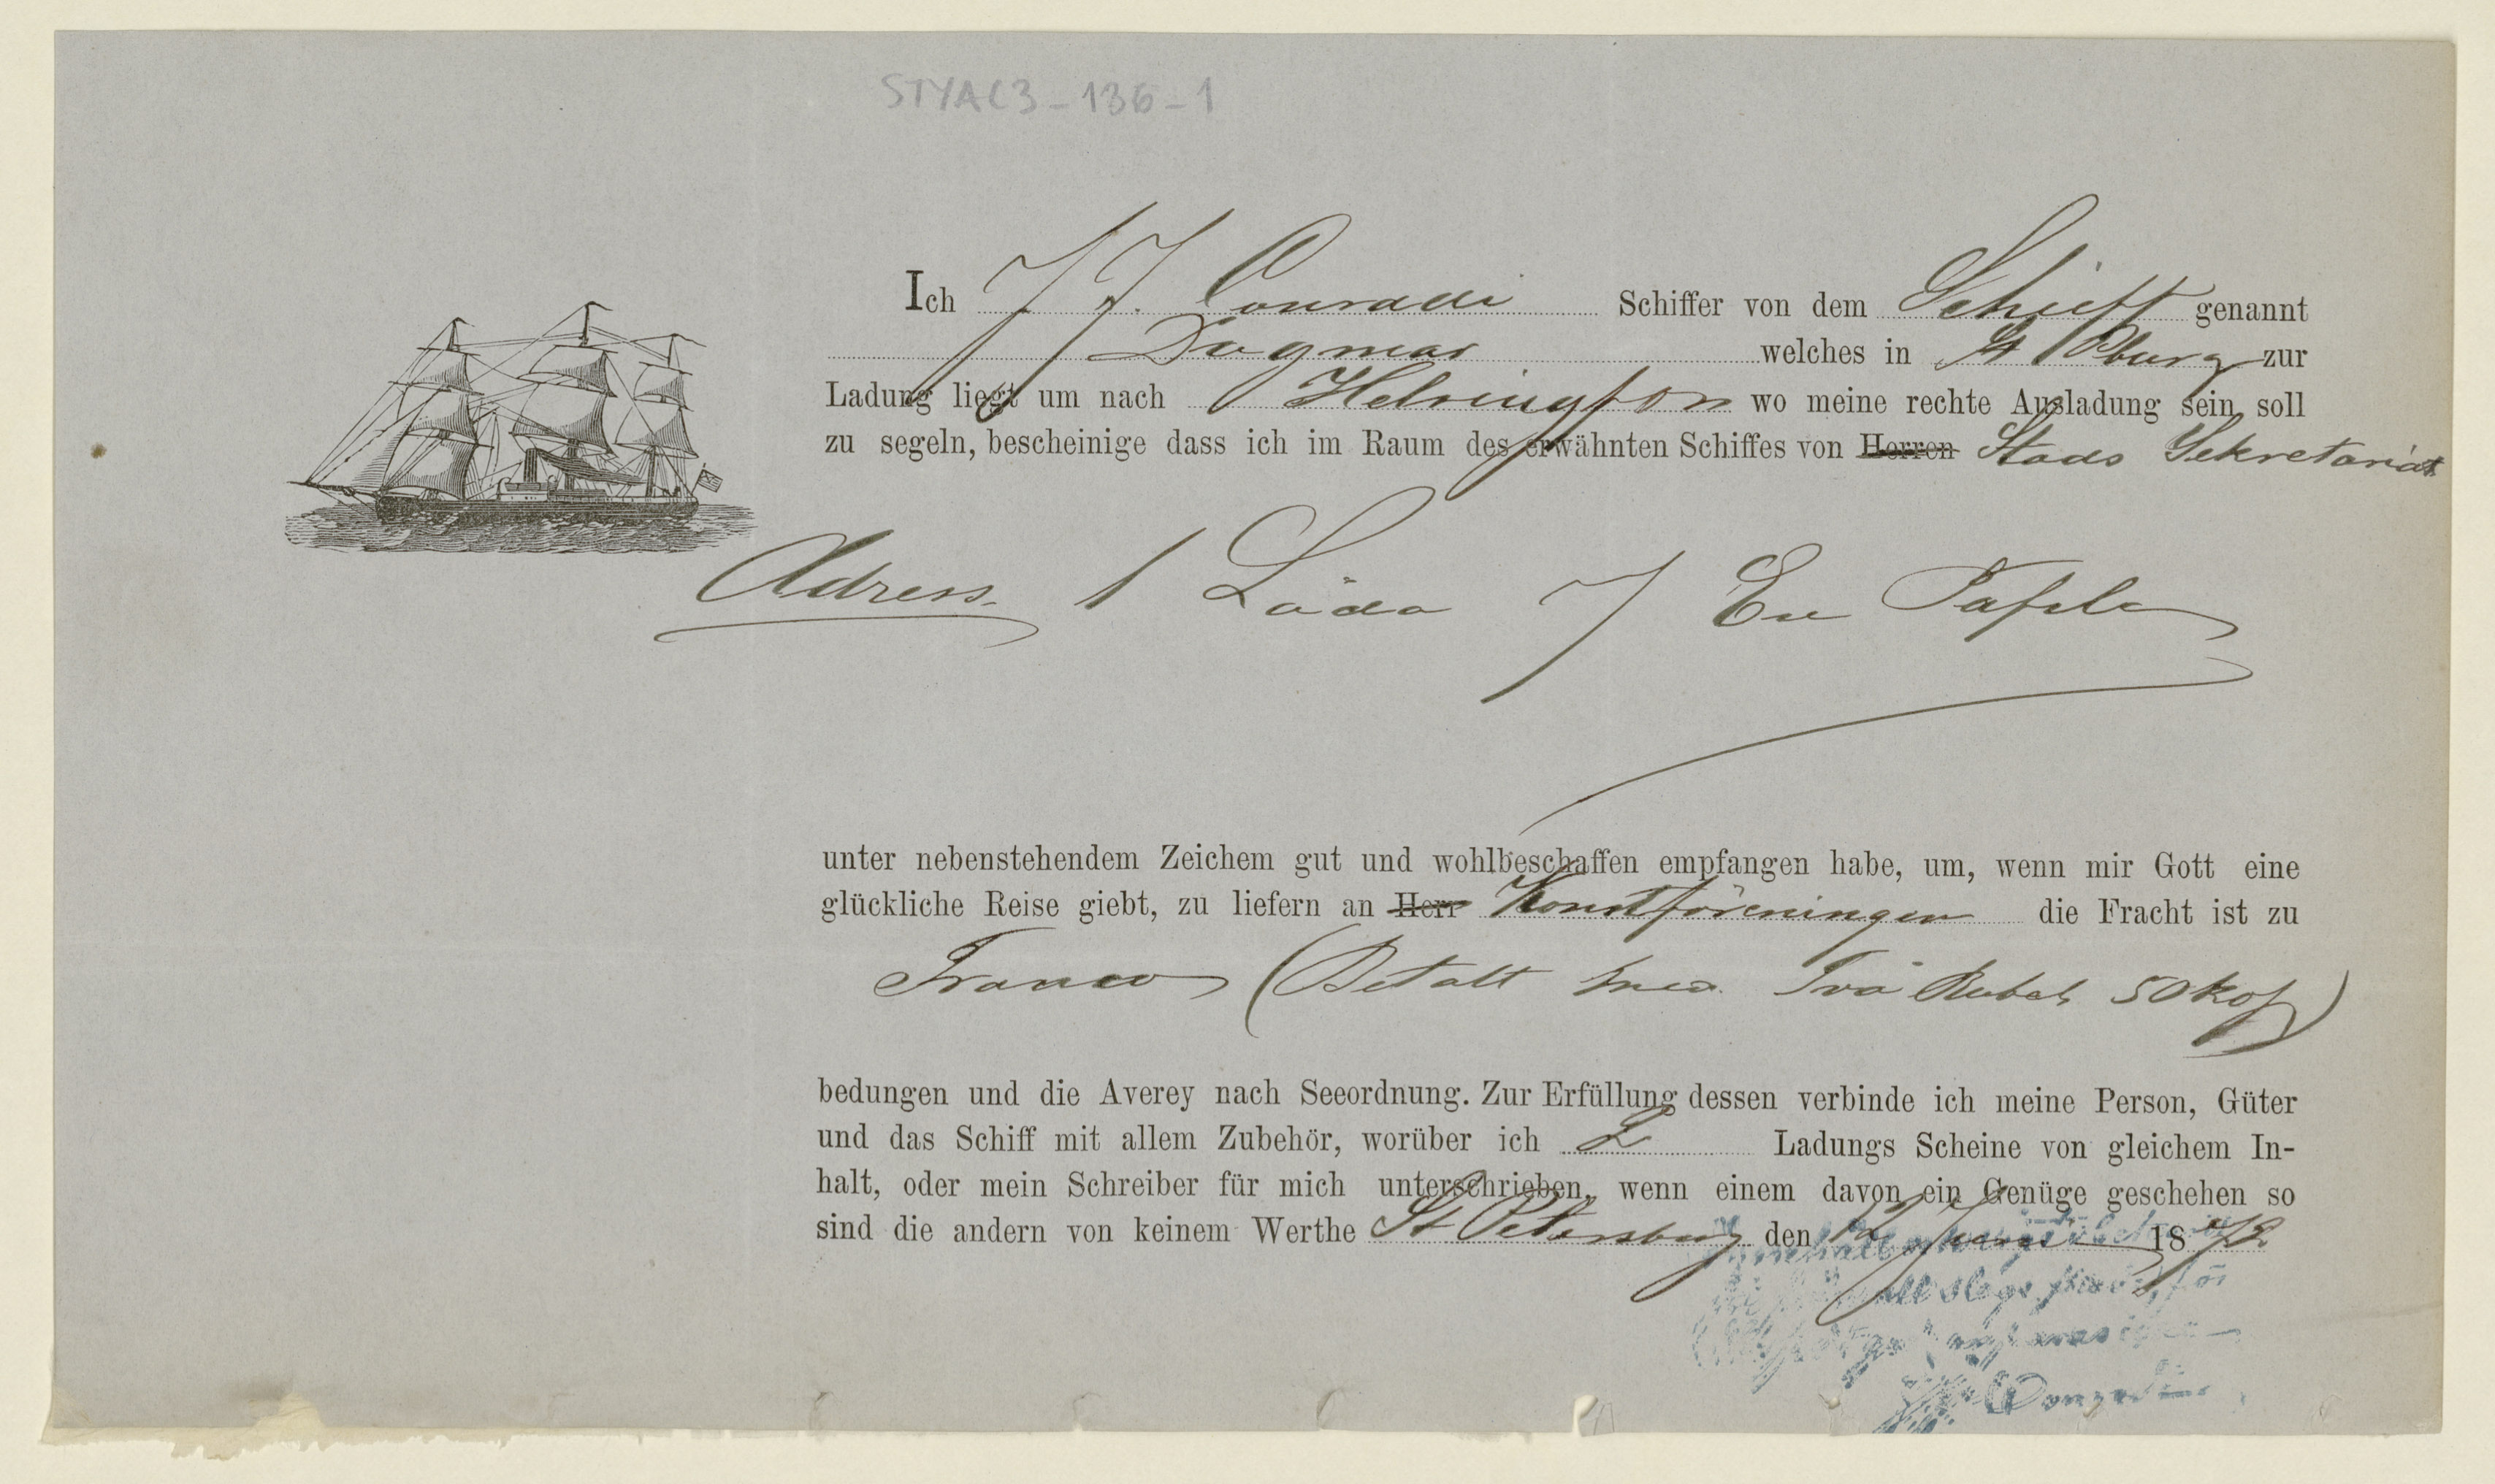 STYAC3-136-1
Ich J J. Conradi Schiffer von dem Schiff genannt
Dagmar welches in St Pburg zur
Ladung liegt um nach Helsingfors wo meine rechte Ausladung sein soll
zu segeln, bescheinige dass ich im Raum des erwähnten Schiffes von Herren Stads Sekretariat
Adress. 1 Låda / En Tafla
unter nebenstehendem Zeichem gut und wohlbeschaffen empfangen habe, um, wenn mir Gott eine
glückliche Reise giebt, zu liefern an Herr Konstföreningen die Fracht ist zu
Franco (Betalt med Två Rubel 50 kop)
bedungen und die Averey nach Seeordnung. Zur Erfüllung dessen verbinde ich meine Person, Güter
und das Schiff mit allem Zubehör, worüber ich 2 Ladungs Scheine von gleichem In-
halt, oder mein Schreiber für mich unterschrieben, wenn einem davon ein Genüge geschehen so
sind die andern von keinem Werthe St Petersburg den 1872